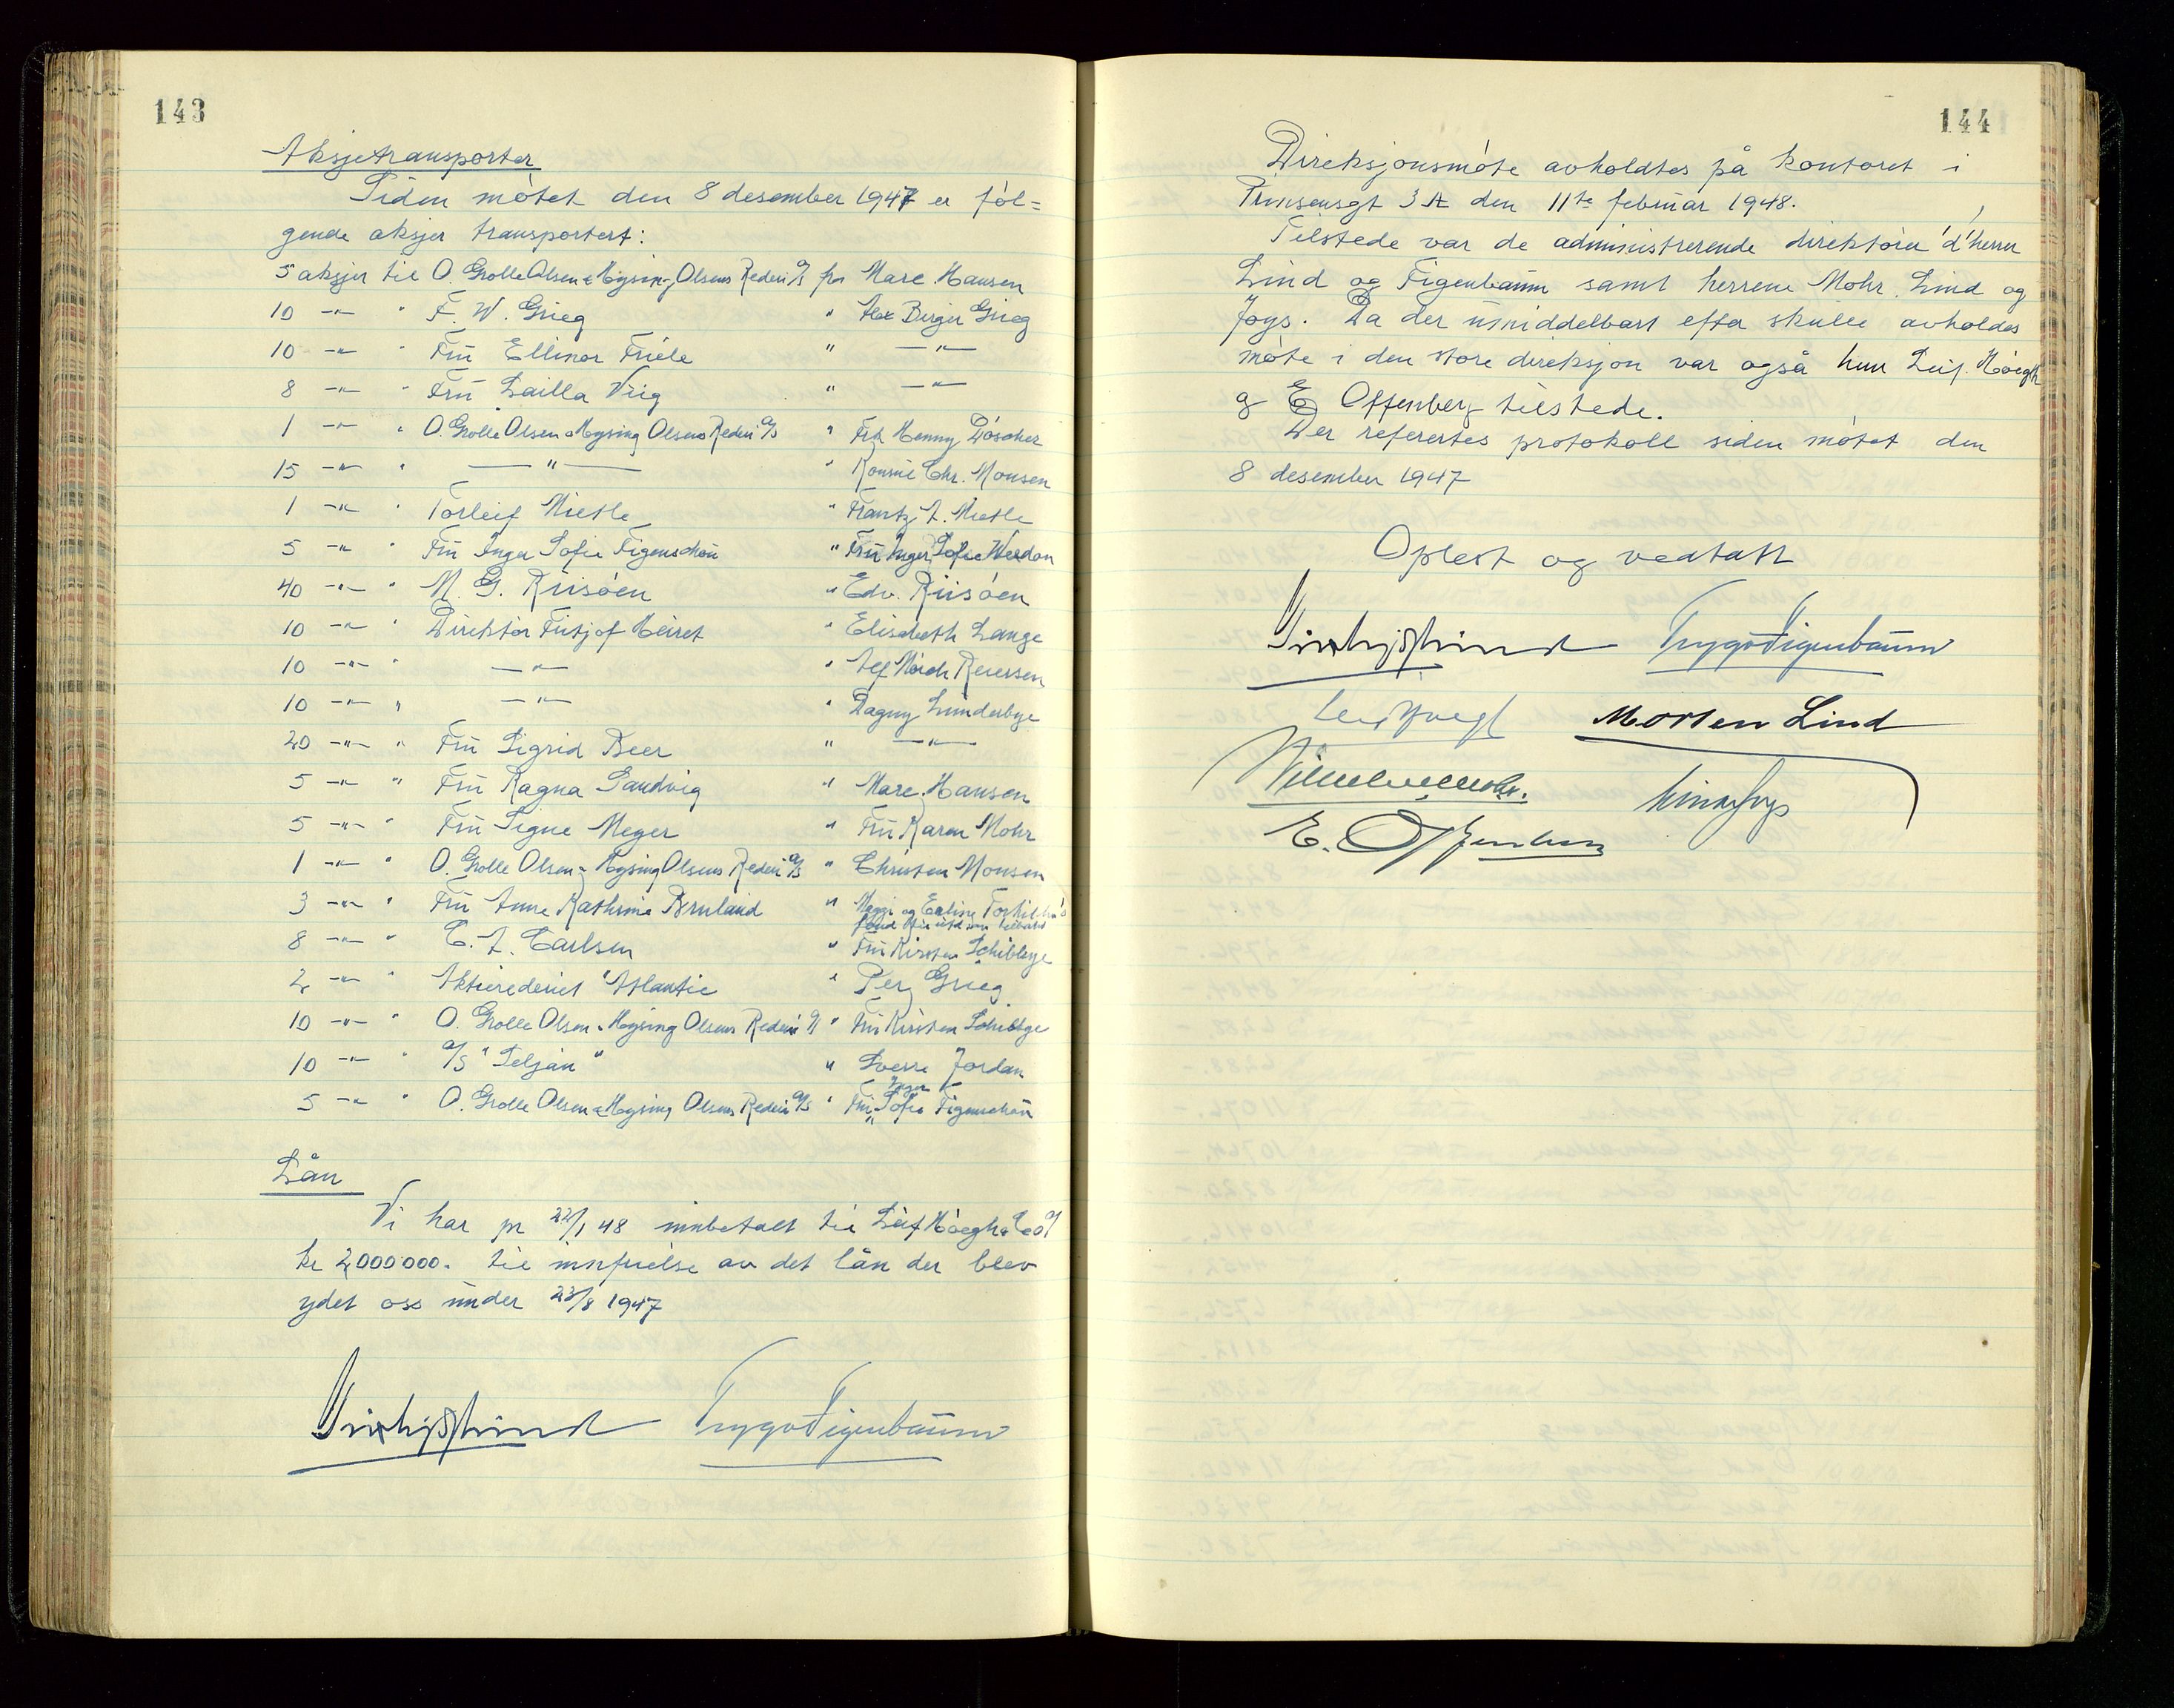 143
Aksjetransporter
Siden møtet den 8 desember 1947 er føl=
gende aksjer transportert:
5 aksjer til O. Grolle Olsen & Hysing Olsens Rederi A/S fra Marc. Hansen
10 -"- " F. W. Grieg " Alex Birger Grieg
10 -"- " Frü Ellinor Friele " -"-
8 -"- " Frü Lailla Vrig " -"-
1 -"- " O. Grolle Olsen & Hysing Olsens Rederi A/S " Frk Henny Döscher
15 -"- " -"- " Konsul Chr. Monsen
1 -"- " Torleif Mietle " Frantz A. Mietle
5 -"- " Frü Inger Sofie Figenschou " Frü Inger Sofie Werdon
40 -"- " M. G. Riisøen " Edv. Riisøen
10 -"- " Direktør Fritjof Heiret " Elisabeth Lange
10 -"- " -"- " Alf Mørch Reiersen
10 -"- " -"- " Dagny Lunderbye
20 -"- " Frü Sigrid Beer " -"-
5 -"- " Frü Ragna Sandvig " Marc. Hansen
5 -"- " Frü Signe Meyer " Frü Karen Mohr
1 -"- " O. Grolle Olsen & Hysing Olsens Rederi A/S " Christen Monsen
3 -"- " Frü Anne Kathrine Bruland " Meggi og Erling
8 -"- " C. A. Carlsen " Frü Kirsten Schibbye
2 -"- " Aktierederiet "Atlantic " Per Grieg
10 -"- " O. Grolle Olsen & Hysing Olsens Rederi A/S " Frü Kirsten Schibbye
10 -"- " A/S "Seljan" " Sverre Jordan
5 -"- " O. Grolle Olsen & Hysing Olsens Rederi A/S " Frü Inger Sofie Figenschou
Lån
Vi har pr 22/1 48 innbetalt til Leif Höegh & Co A/S
kr 2,000 000. til innfrielse av det lån der blev
ydet oss under 23/8 1947
Trygve Figenbaum
144
Direksjonsmøte avholdtes på kontoret i
Prinsensgt 3 A den 11te februar 1948.
Tilstede var de administrerende direktører d'herrer
Lind og Figenbaum samt herrene Mohr, Lind og
Joys. Da der umiddelbart efter skulle avholdes
møte i den store direksjon var også herr Leif Höegh
og E Offenberg tilstede.
Der refererтes protokoll siden møtet den
8 desember 1947
Oplest og vedtatt
Trygve Figenbaum
Leif Höegh Morten Lind
Wilhelm Mohr.
E. Offenberg